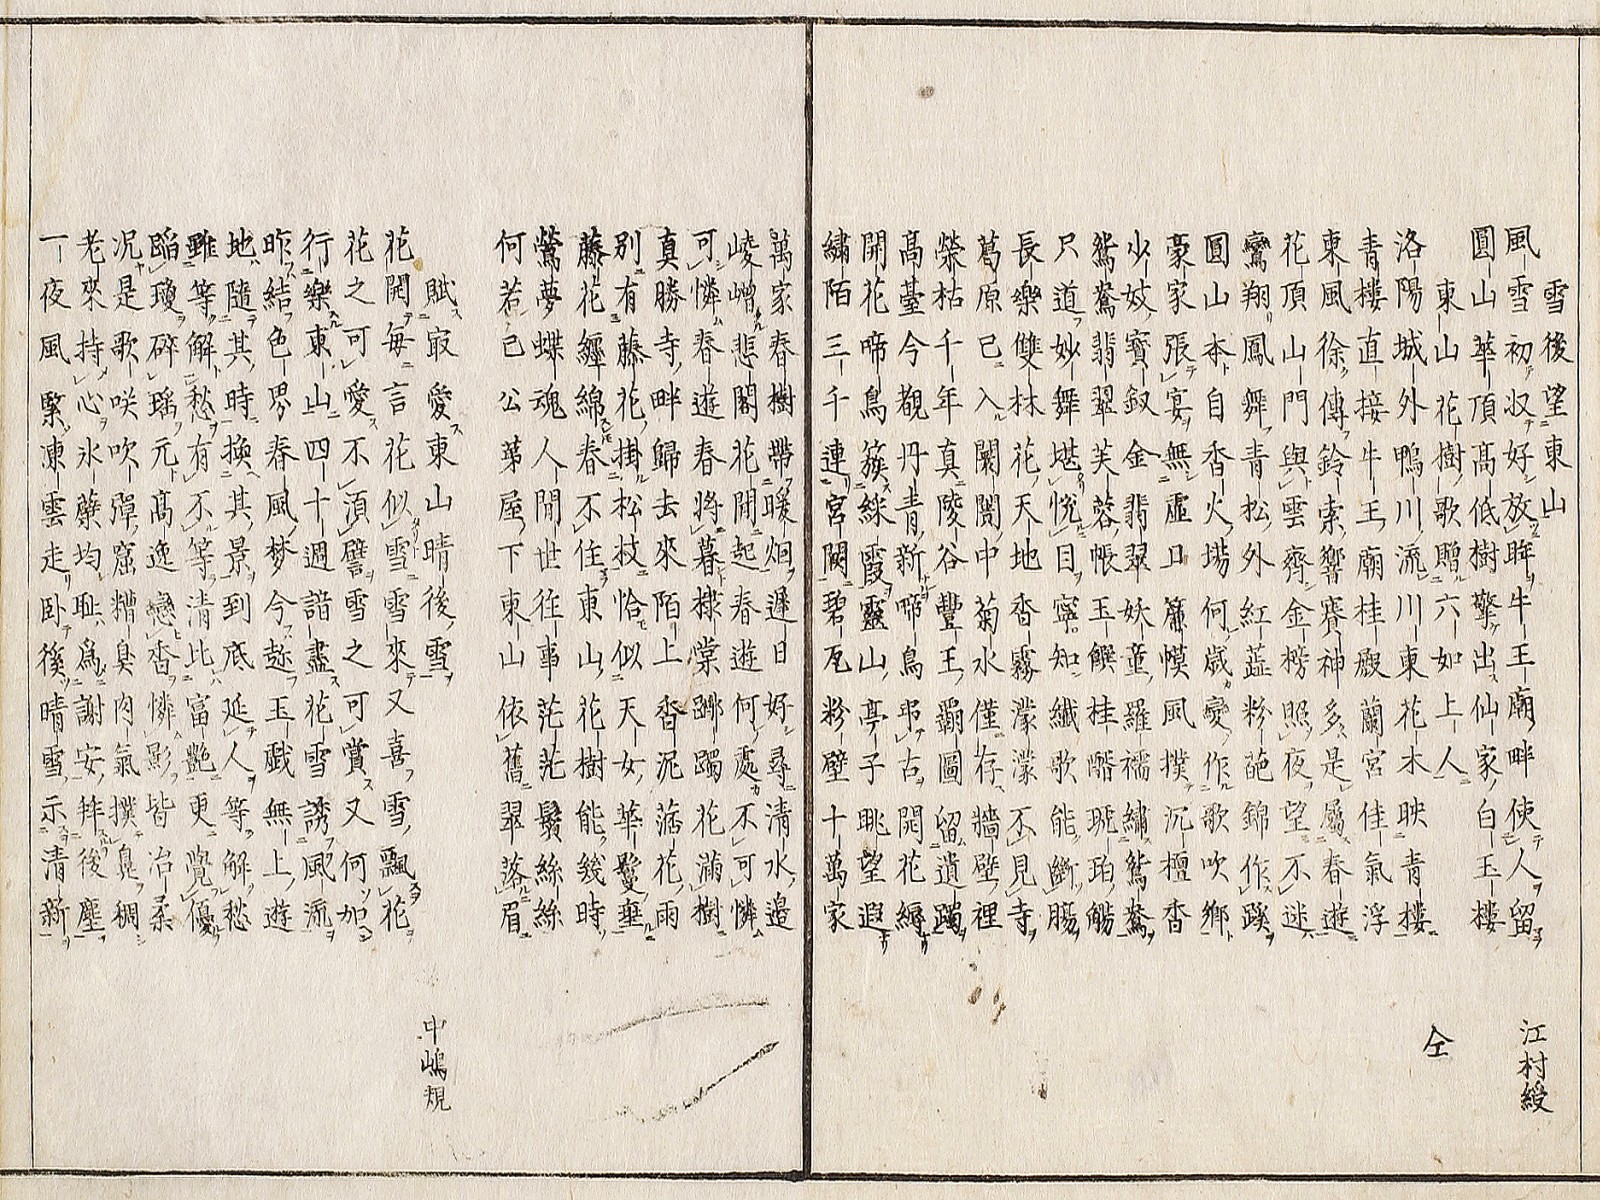 雪後望東山
江村綬
風雪初収好放眸牛王廟畔使人留
圓山華頂高低樹擎出仙家白玉樓
東山花樹歌贈六如上人
仝
洛陽城外鴨川流川東花木映青樓
青樓直接牛王廟桂殿蘭宮佳氣浮
東風徐傳鈴索響賽神多是屬春遊
花頂山門與雲齊金榜照夜望不迷
鸞翔鳳舞青松外紅蕋粉葩錦作蹊
圓山本自香火場何歲變作歌吹鄉
豪家張宴無虛日簾幙風撲沉檀香
少妓寳釵金翡翠妖童羅襦繡鴛鴦
鴛鴦翡翠芙蓉帳玉饌桂醑琥珀觴
只道妙舞堪悅目寧知纖歌能斷腸
長樂雙林花天地香霧濛濛不見寺
葛原已入闤闠中菊水僅存牆壁裡
榮枯千年真陵谷豐王霸圖留遺躅
高臺今觀丹青新啼鳥弔古開花縟
開花啼鳥簇綵霞靈山亭子眺望遐
繡陌三千連宮闕碧瓦粉壁十萬家
萬家春樹帶暖烟遲日好尋清水邊
崚嶒悲閣花開起春遊何處不可憐
可憐春遊春將暮棣棠躑躅花滿樹
真勝寺畔歸去來陌上香泥蘸花雨
別有藤花掛松枝恰似天女華鬘垂
藤花纏綿春不住東山花樹能幾時
鶯夢蝶魂人間世往事茫茫鬢絲絲
何若已公茅屋下東山依舊翠落眉
賦寂愛東山晴後雪
中嶋規
花開每言花似雪雪來又喜雪飄花
花之可愛不須譬雪之可賞又何加
行樂東山四十週諳盡花雪誘風流
昨結色界春風夢今趂玉戲無上遊
地隨其時換其景到底延人等解愁
雖等解愁有不等清比富艷更覺優
蹈瓊碎瑶元高逸戀香憐影皆冶柔
况是歌咲吹彈窟糟臭肉氣撲臭稠
老來持心氷蘗均耻爲謝安拜後塵
一夜風緊凍雲走卧後晴雪示清新